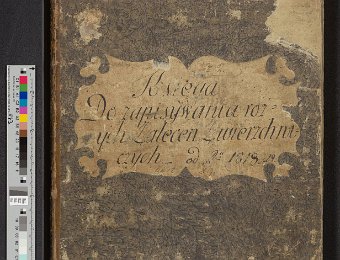 Księga
Do zapisywania roż-
nych Zaleceń Zwierzchni-
czych od Ru 1818.